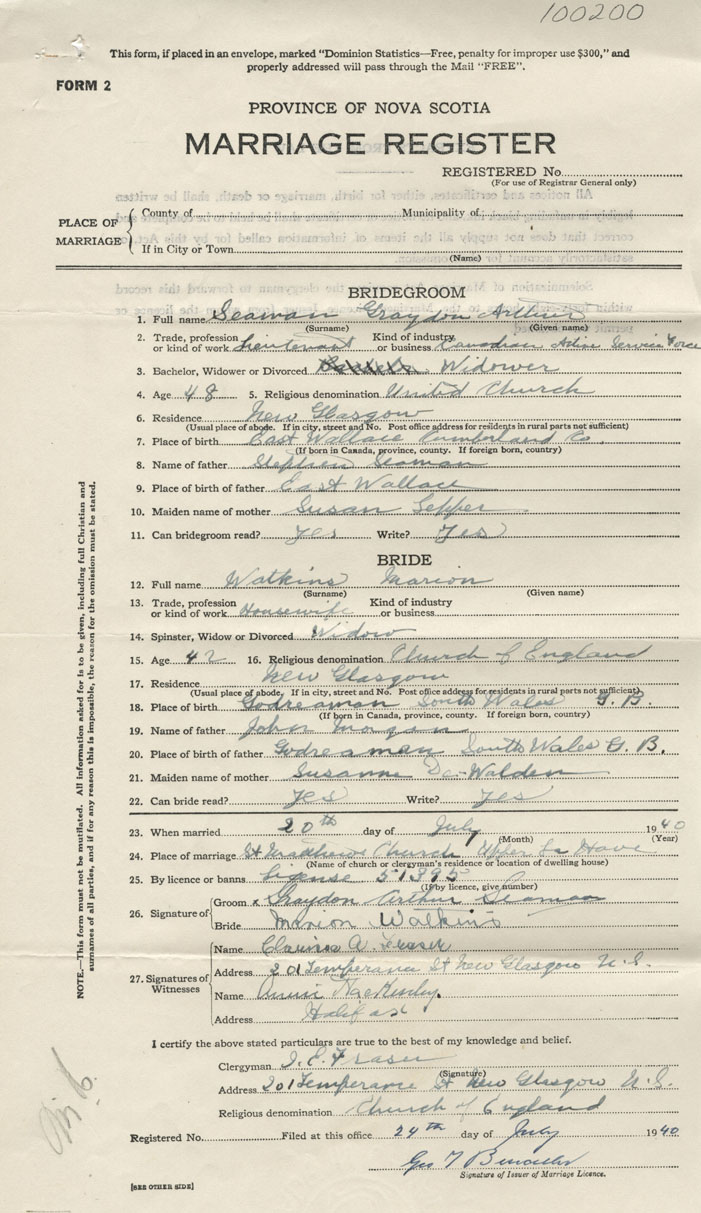 100200
This form, if placed in an envelope, marked "Dominion Statistics—Free, penalty for improper use $300," and
properly addressed will pass through the Mail "FREE".
FORM 2
PROVINCE OF NOVA SCOTIA
MARRIAGE REGISTER
REGISTERED No.
(For use of Registrar General only)
PLACE OF MARRIAGE
County of Municipality of
If in City or Town
(Name)
BRIDEGROOM
1. Full name Seaman Graydon Arthur
(Surname) (Given name)
2. Trade, profession or kind of work Lieutenant Kind of industry or business Canadian Active Service Force
3. Bachelor, Widower or Divorced Widower
4. Age 48 5. Religious denomination United Church
6. Residence New Glasgow
(Usual place of abode. If in city, street and No. Post office address for residents in rural parts not sufficient)
7. Place of birth East Wallace Cumberland Co.
(If born in Canada, province, county. If foreign born, country)
8. Name of father Stephen Seaman
9. Place of birth of father East Wallace
10. Maiden name of mother Susan
11. Can bridegroom read? yes Write? Yes
BRIDE
12. Full name Watkins Marion
(Surname) (Given name)
13. Trade, profession or kind of work Housewife Kind of industry or business
14. Spinster, Widow or Divorced Widow
15. Age 42 16. Religious denomination Church of England
17. Residence New Glasgow
(Usual place of abode. If in city, street and No. Post office address for residents in rural parts not sufficient)
18. Place of birth Godreaman South Wales G. B.
(If born in Canada, province, county. If foreign born, country)
19. Name of father John Morgan
20. Place of birth of father Godreaman South Wales G. B.
21. Maiden name of mother Susanne De Walden
22. Can bride read? yes Write? yes
23. When married 20th day of July 1940
(Month) (Year)
24. Place of marriage St Church Upper
(Name of church or clergyman's residence or location of dwelling house)
25. By licence or banns License 51395
(If by licence, give number)
26. Signature of
Groom x Graydon Arthur Seaman
Bride Marion Watkins
27. Signatures of Witnesses
Name A. Fraser
Address 201 Temperance St New Glasgow N.S.
Name Annie
Address Halifax
I certify the above stated particulars are true to the best of my knowledge and belief.
Clergyman I. E. Fraser
(Signature)
Address 201 Temperance St New Glasgow N.S.
Religious denomination Church of England
Registered No. Filed at this office 24th day of July 1940
Geo T
Signature of Issuer of Marriage Licence.
[SEE OTHER SIDE]
NOTE.—This form must not be mutilated. All information asked for is to be given, including full Christian and
surnames of all parties, and if for any reason this is impossible, the reason for the omission must be stated.